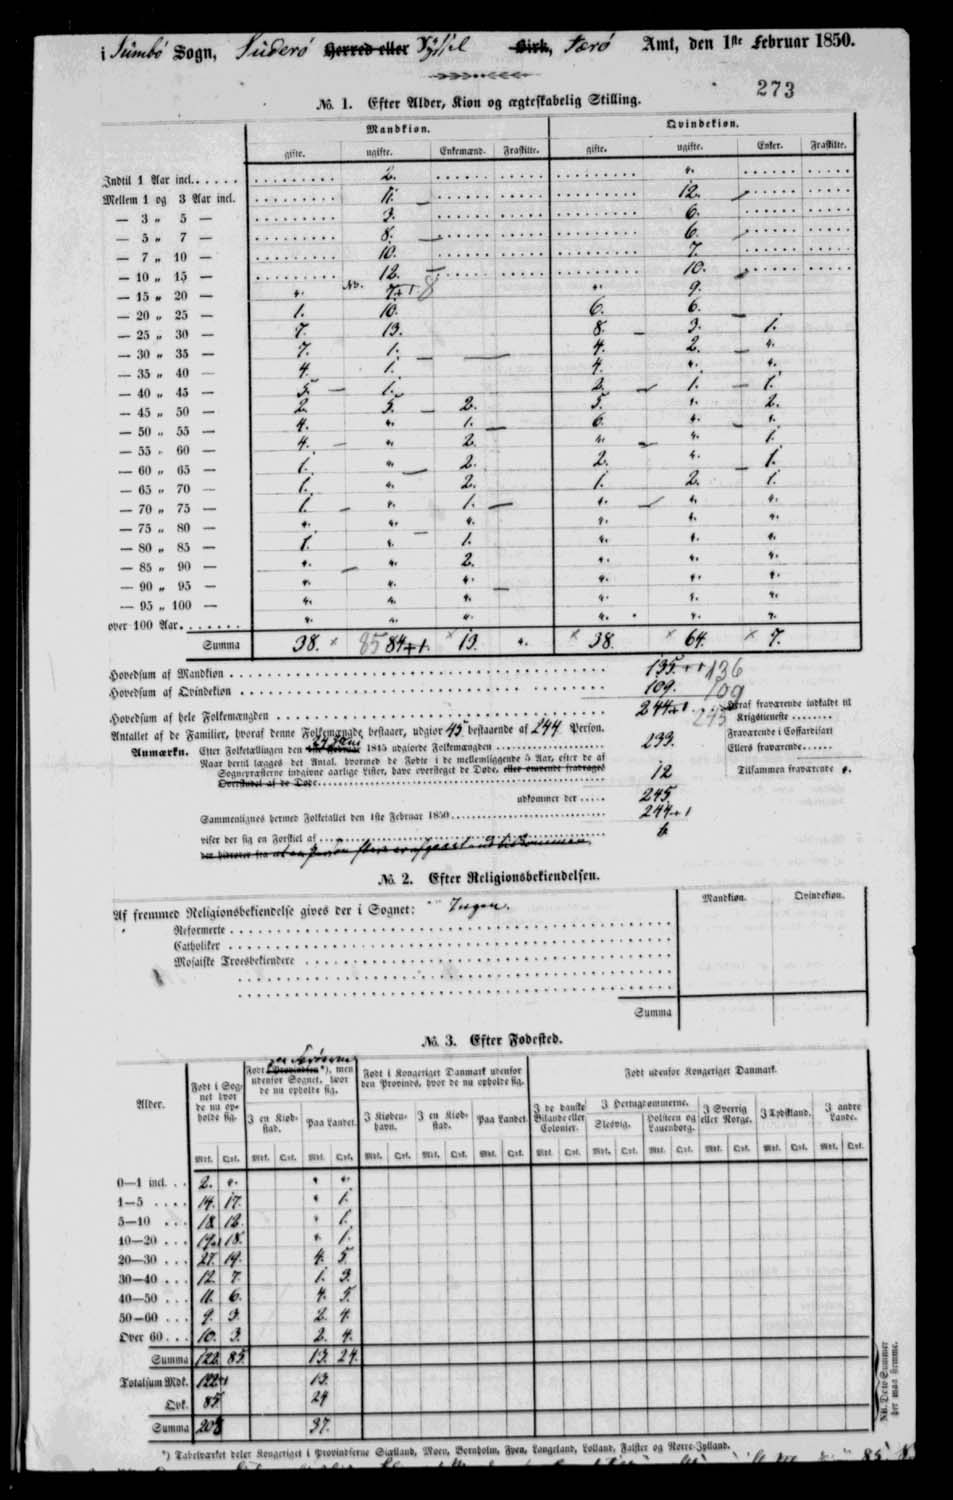 i Sumbø Sogn, Suderø Herred eller Syssel Birk, Færø Amt, den 1ste Februar 1850.
273
No. 1. Efter Alder, Kiøn og ægteskabelig Stilling.
Mandkiøn. Qvindekiøn.
gifte. ugifte. Enkemænd. Fraskilte. gifte. ugifte. Enker. Fraskilte.
Indtil 1 Aar incl. 2. ".
Mellem 1 og 3 Aar incl. 11. 12.
— 3 " 5 — 3. 6.
— 5 " 7 — 8. 6.
— 7 " 10 — 10. 7.
— 10 " 15 — 12. 10.
— 15 " 20 — ". 7.+1 8 ". 9.
— 20 " 25 — 1. 10. 6. 6.
— 25 " 30 — 7. 13. 8. 3. 1.
— 30 " 35 — 7. 1. 4. 2. ".
— 35 " 40 — 4. 1. 4. ". ".
— 40 " 45 — 5. 1. 2. 1. 1.
— 45 " 50 — 2. 5. 2. 5. ". 2.
— 50 " 55 — 4. ". 1. 6. ". ".
— 55 " 60 — 4. ". 2. ". ". 1.
— 60 " 65 — 1. ". 2. 2. ". 1.
— 65 " 70 — 1. ". 2. 1. 2. 1.
— 70 " 75 — 1. ". 1. ". ". ".
— 75 " 80 — ". ". ". ". ". ".
— 80 " 85 — 1. ". 1. ". ". ".
— 85 " 90 — ". ". 2. ". ". ".
— 90 " 95 — ". ". ". ". ". ".
— 95 " 100 — ". ". ". ". ". ".
over 100 Aar. ". ". ". ". ". ".
Summa 38. 85 84+1. 13. ". 38. 64. 7.
Hovedsum af Mandkiøn 135.+1 136
Hovedsum af Qvindekiøn 109. 109
Hovedsum af hele Folkemængden 244+1 245
Deraf fraværende indkaldt til Krigstieneste
Antallet af de Familier, hvoraf denne Folkemængde bestaaer, udgiør 45 bestaaende af 244 Person.
Fraværende i Coffardifart
Anmærkn. Efter Folketællingen den 1ste Februar 1845 udgiorde Folkemængden 233.
Ellers fraværende
Naar hertil lægges det Antal, hvormed de Fødte i de mellemliggende 5 Aar, efter de af
Sognepræsterne indgivne aarlige Lister, have oversteget de Døde, eller omvendt fradrages
Overskudet af de Døde 12
Tilsammen fraværende ".
udkommer der 245
Sammenlignes hermed Folketallet den 1ste Februar 1850 244+1
viser der sig en Forskiel af
No. 2. Efter Religionsbekiendelsen.
Mandkiøn. Qvindekiøn.
Af fremmed Religionsbekiendelse gives der i Sognet: Ingen.
Reformerte
Catholiker
Mosaiske Troesbekiendere
Summa
No. 3. Efter Fødested.
Alder.
Født i Sognet hvor de nu opholde sig.
Født i Provindsen *), men udenfor Sognet, hvor de nu opholde sig.
Født i Kongeriget Danmark udenfor den Provinds, hvor de nu opholde sig.
Født udenfor Kongeriget Danmark.
I en Kiøbstad. Paa Landet. I Kiøbenhavn. I en Kiøbstad. Paa Landet. I de danske Bilande eller Colonier. I Hertugdømmerne. Slesvig. Holsteen og Lauenborg. I Sverrig eller Norge. I Tydskland. I andre Lande.
Mdk. Qvk. Mdk. Qvk. Mdk. Qvk. Mdk. Qvk. Mdk. Qvk. Mdk. Qvk. Mdk. Qvk. Mdk. Qvk. Mdk. Qvk. Mdk. Qvk. Mdk. Qvk. Mdk. Qvk.
0—1 incl. 2. ". " ".
1—5 14. 17. " 1.
5—10 18. 12. " 1.
10—20 19+1 18. ". 1.
20—30 27. 19. 4. 5.
30—40 12. 7. 1. 3.
40—50 11. 6. 4. 5.
50—60 9. 3. 2. 4.
Over 60 10. 3. 2. 4.
Summa 122. 85. 13. 24.
Totalsum Mdk. 122+1 13.
Qvk. 85. 24
Summa 208 37.
NB. Dette Summer her maa stemme.
*) Tabelværket deler Kongeriget i Provindserne Siælland, Møen, Bornholm, Fyen, Langeland, Lolland, Falster og Nørre-Jylland.